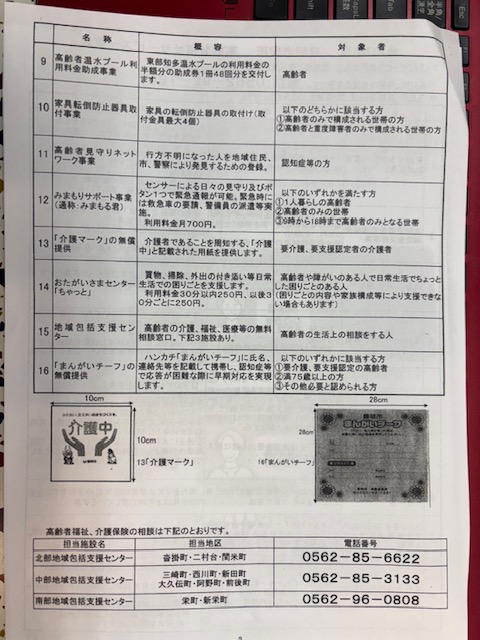 名 称 概 容 対 象 者
9 高齢者温水プール利用料金助成事業 東部知多温水プールの利用料金の半額分の助成券1冊48回分を交付します。 高齢者
10 家具転倒防止器具取付事業 家具の転倒防止器具の取付け(取付金具最大4個) 以下のどちらかに該当する方
①高齢者のみで構成される世帯の方
②高齢者と重度障害者のみで構成される世帯の方
11 高齢者見守りネットワーク事業 行方不明になった人を地域住民、市、警察により発見するための登録。 認知症等の方
12 みまもりサポート事業(通称:みまもる君) センサーによる日々の見守り及びボタン1つで緊急通報が可能。緊急時には救急車の要請、警備員の派遣等実施。
利用料金月700円。
以下のいずれかを満たす方
①1人暮らしの高齢者
②高齢者のみの世帯
③9時から18時まで高齢者のみとなる世帯
13 「介護マーク」の無償提供 介護者であることを周知する、「介護中」と記載された用紙を提供します。 要介護、要支援認定者の介護者
14 おたがいさまセンター「ちゃっと」 買物、掃除、外出の付き添い等日常生活での困りごとを支援します。
利用料金30分以内250円、以後30分ごとに250円。
高齢者や障がいのある人で日常生活でちょっとした困りごとのある人
(困りごとの内容や家族構成等により支援できない場合もあります)
15 地域包括支援センター 高齢者の介護、福祉、医療等の無料相談窓口。下記3施設あり。 高齢者の生活上の相談をする人
16 「まんがいチーフ」の無償提供 ハンカチ「まんがいチーフ」に氏名、連絡先等を記載して携帯し、認知症等で応答が困難な際に早期対応を実現します。 以下のいずれかに該当する方
①要介護、要支援認定の高齢者
②満75歳以上の方
③その他必要と認められる方
10cm
28cm
介護中
10cm
13「介護マーク」
28cm
まんがいチーフ
16「まんがいチーフ」
高齢者福祉、介護保険の相談は下記のとおりです。
担当施設名 担当地区 電話番号
北部地域包括支援センター 沓掛町・二村台・間米町 0562-85-6622
中部地域包括支援センター 三崎町・西川町・新田町
大久伝町・阿野町・前後町 0562-85-3133
南部地域包括支援センター 栄町・新栄町 0562-96-0808